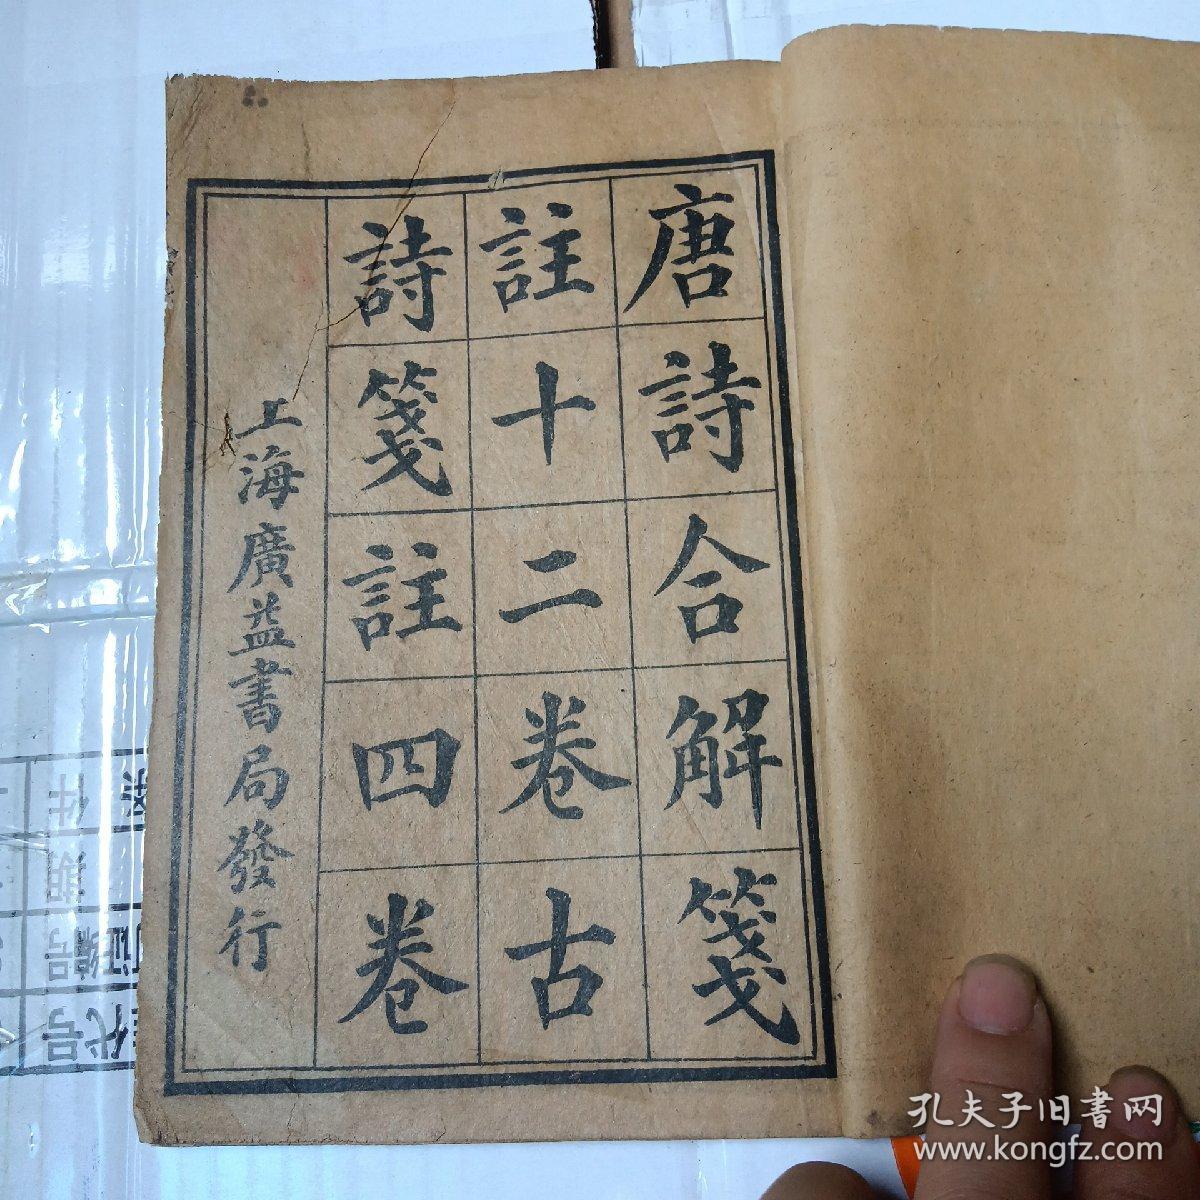 唐詩合解箋
註十二卷古
詩箋註四卷
上海廣益書局發行
孔夫子旧书网
www.kongfz.com